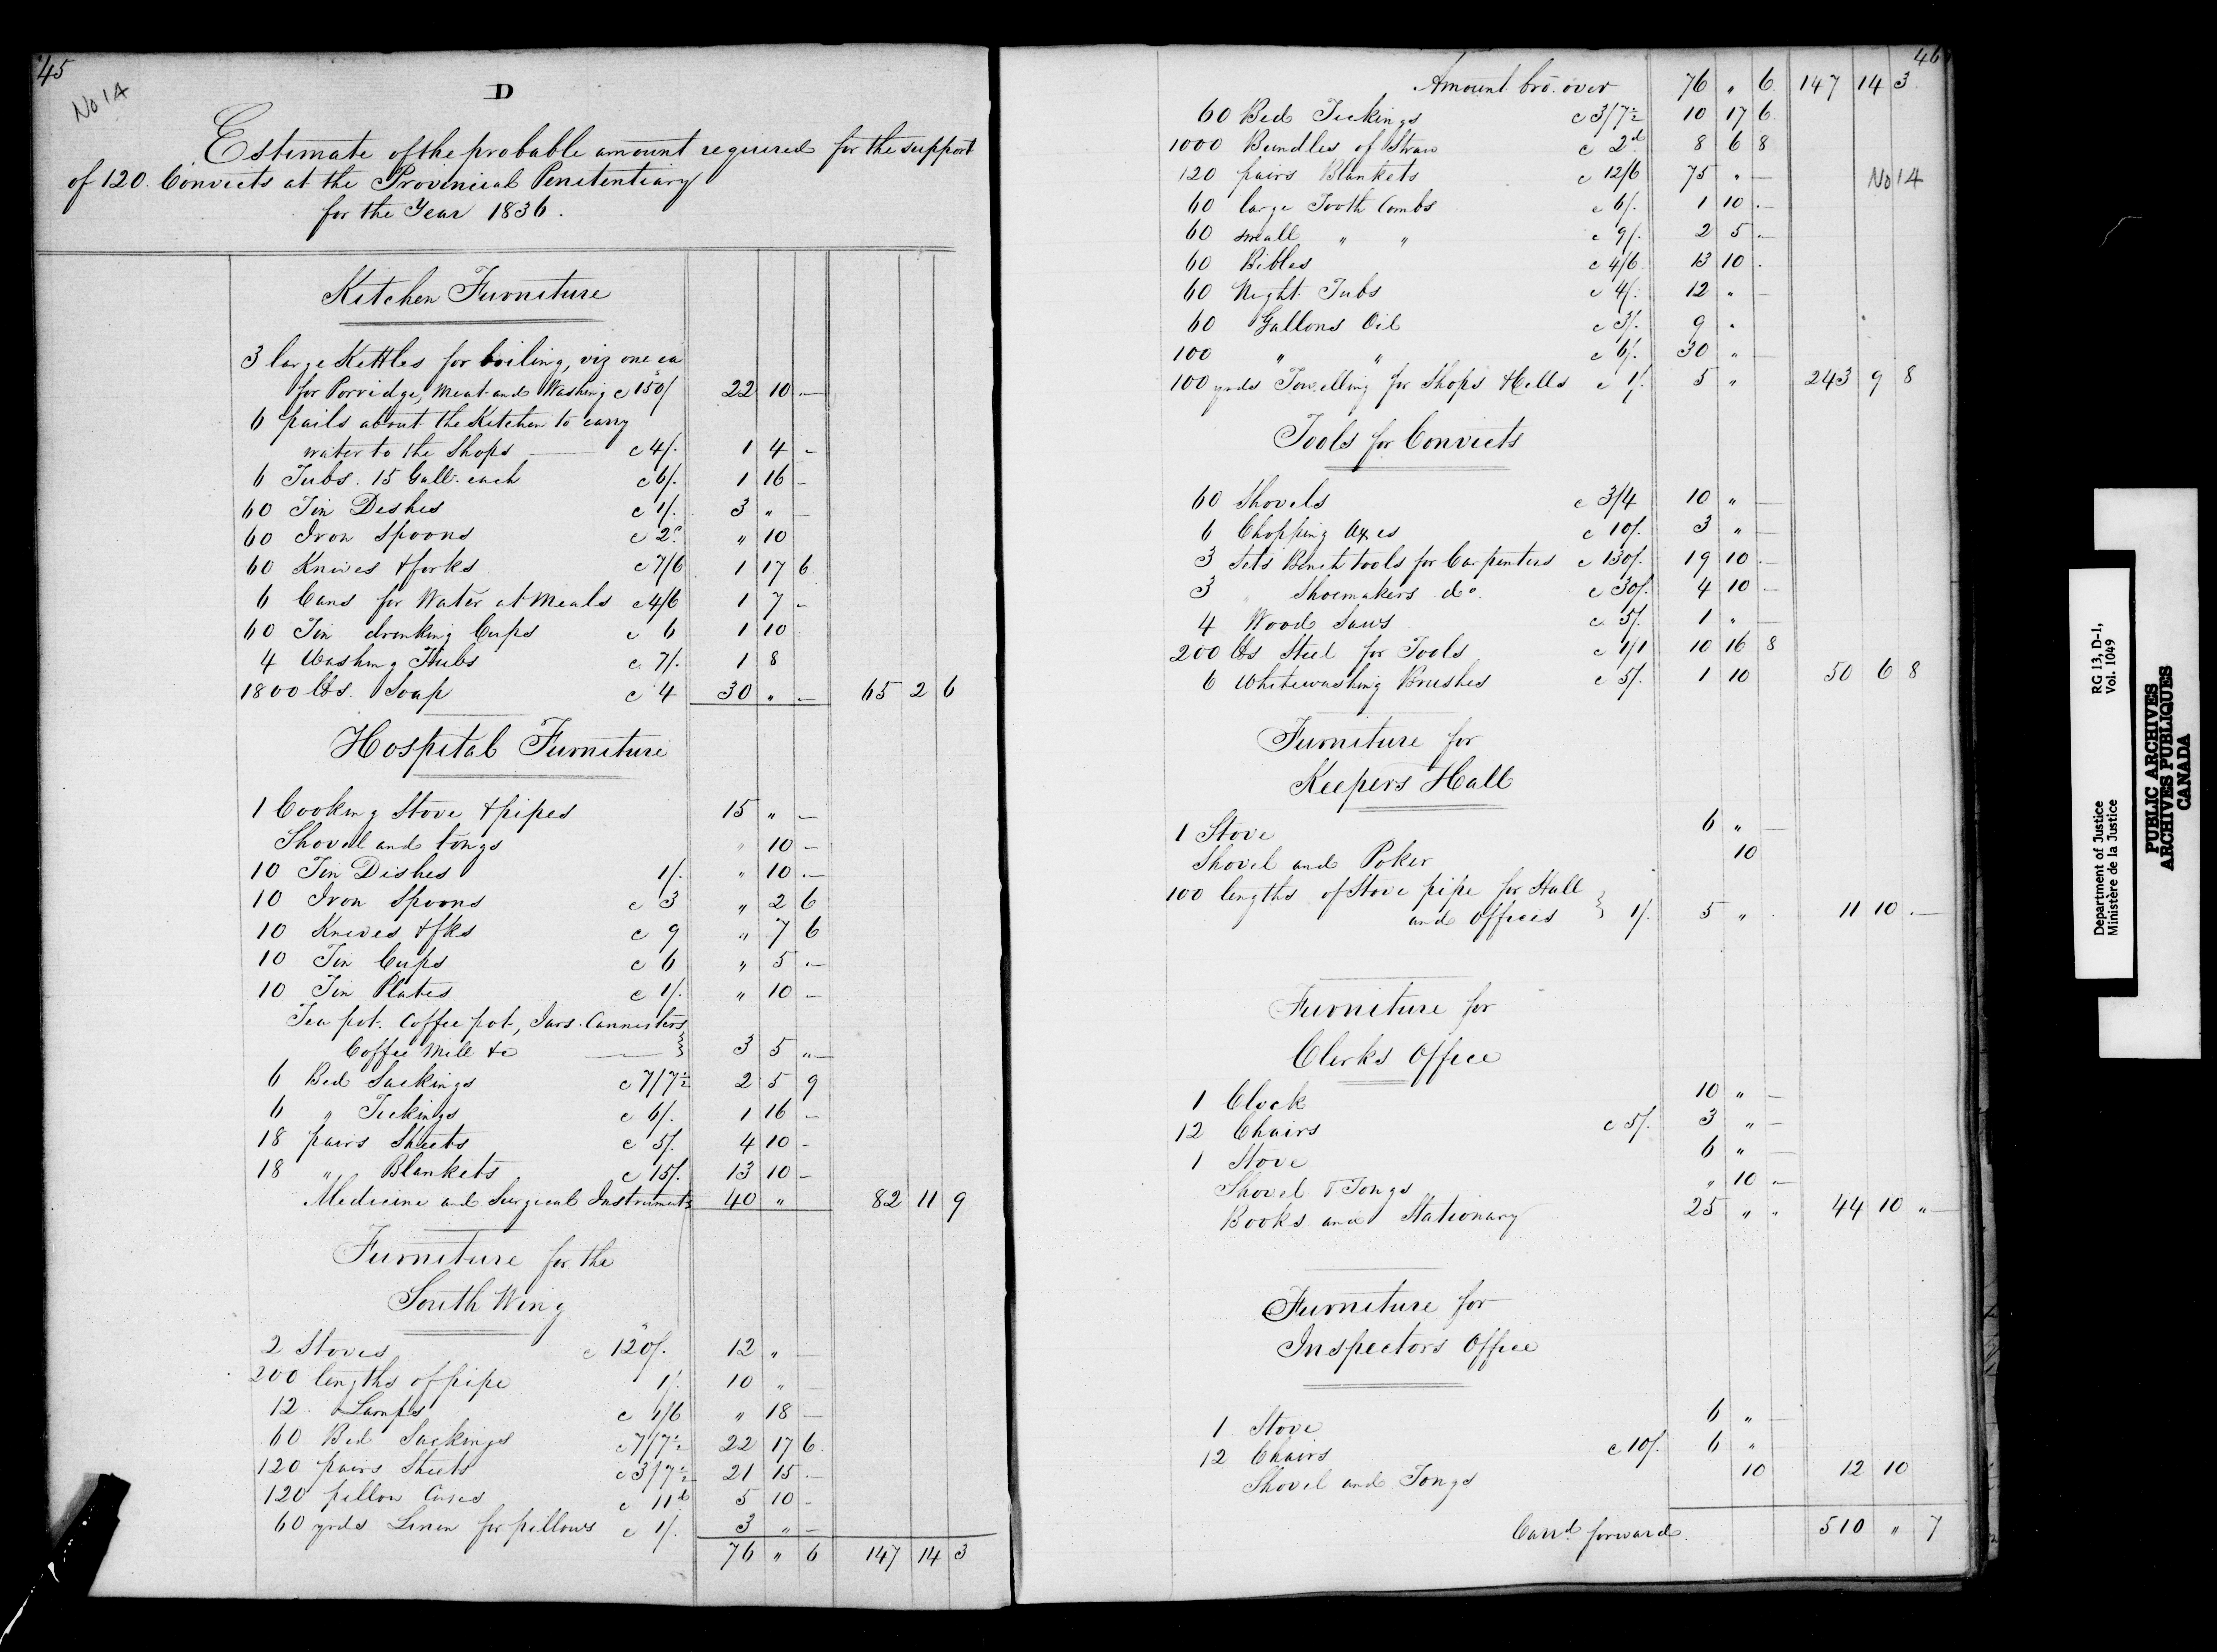 45
No 14
D
Estimate of the probable amount required for the support
of 120. Convicts at the Provincial Penitentiary
for the Year 1836.
Kitchen Furniture
3 large Kettles for boiling, viz one ea
for Porridge, Meat and Washing c 150/ 22 10 —
6 pails about the Kitchen to carry
water to the Shops — c 4/. 1 4 -
6 Tubs. 15 Gall. each c 6/. 1 16 -
60 Tin Dishes c 1/. 3 " —
60 Iron Spoons c 2d. " 10
60 Knives & forks c 7/6 1 17 6
6 Cans for Water at Meals c 4/6 1 7 -
60 Tin drinking Cups c 6 1 10
4 Washing Tubs c 7/. 1 8
1800 lbs. Soap c 4 30 " — 65 2 6
Hospital Furniture
1 Cooking Stove & pipes 15 " —
Shovel and tongs " 10 —
10 Tin Dishes 1/. " 10 —
10 Iron Spoons c 3 " 2 6
10 Knives & fks c 9 " 7 6
10 Tin Cups c 6 " 5 —
10 Tin Plates c 1/. " 10 —
Tea pot. Coffee pot, Jars. Cannisters
Coffee Mill &c — } 3 5 " —
6 Bed Sackings c 7/7½ 2 5 9
6 " Tickings c 6/. 1 16 -
18 pairs Sheets c 5/. 4 10 -
18 " Blankets c 15/. 13 10 -
Medicine and Surgical Instruments 40 " 82 11 9
Furniture for the
South Wing
2 Stoves c 120/. 12 " —
200 lengths of pipe 1/. 10 " —
12. Lamps c 1/6 " 18 —
60 Bed Sackings c 7/7½ 22 17 6
120 pairs Sheets c 3/7½ 21 15 —
120 pillow Cases c 11d 5 10 -
60 yrds Linen for pillows c 1/. 3 " —
76 " 6 147 14 3
46
Amount bro. over 76 " 6 147 14 3
60 Bed Tickings c 3/7½ 10 17 6
1000 Bundles of Straw c 2d. 8 6 8
120 pairs Blankets c 12/6 75 " —
No 14
60 large Tooth Combs c 6/. 1 10 —
60 small " " c 9/. 2 5 —
60 Bibles c 4/6 13 10 .
60 Night Tubs c 4/. 12 " —
60 Gallons Oil c 3/. 9 "
100 " " c 6/. 30 " —
100 yrds Towelling for Shops & Cells c 1/. 5 " 243 9 8
Tools for Convicts
60 Shovels c 3/4 10 " —
6 Chopping Axes c 10/. 3 " —
3 Sets Bench tools for Carpenters c 130/. 19 10 —
3 " Shoemakers do. c 30/. 4 10 —
4 Wood Saws c 5/. 1 " —
200 lbs Steel for Tools c 1/1 10 16 8
6 Whitewashing Brushes c 5/. 1 10 50 6 8
Furniture for
Keepers Hall
1 Stove 6 " —
Shovel and Poker 10
100 lengths of Stove pipe for Hall
and Offices } 1/. 5 " 11 10 —
Furniture for
Clerks Office
1 Clock 10 " —
12 Chairs c 5/. 3 " —
1 Stove 6 " —
Shovel & Tongs " 10 —
Books and Stationary 25 " " 44 10 " —
Furniture for
Inspectors Office
1 Stove 6 " —
12 Chairs c 10/. 6 "
Shovel and Tongs 10 12 10
Carrd. forward 510 " 7
Department of Justice RG 13, D-1,
Ministère de la Justice Vol. 1049
PUBLIC ARCHIVES
ARCHIVES PUBLIQUES
CANADA